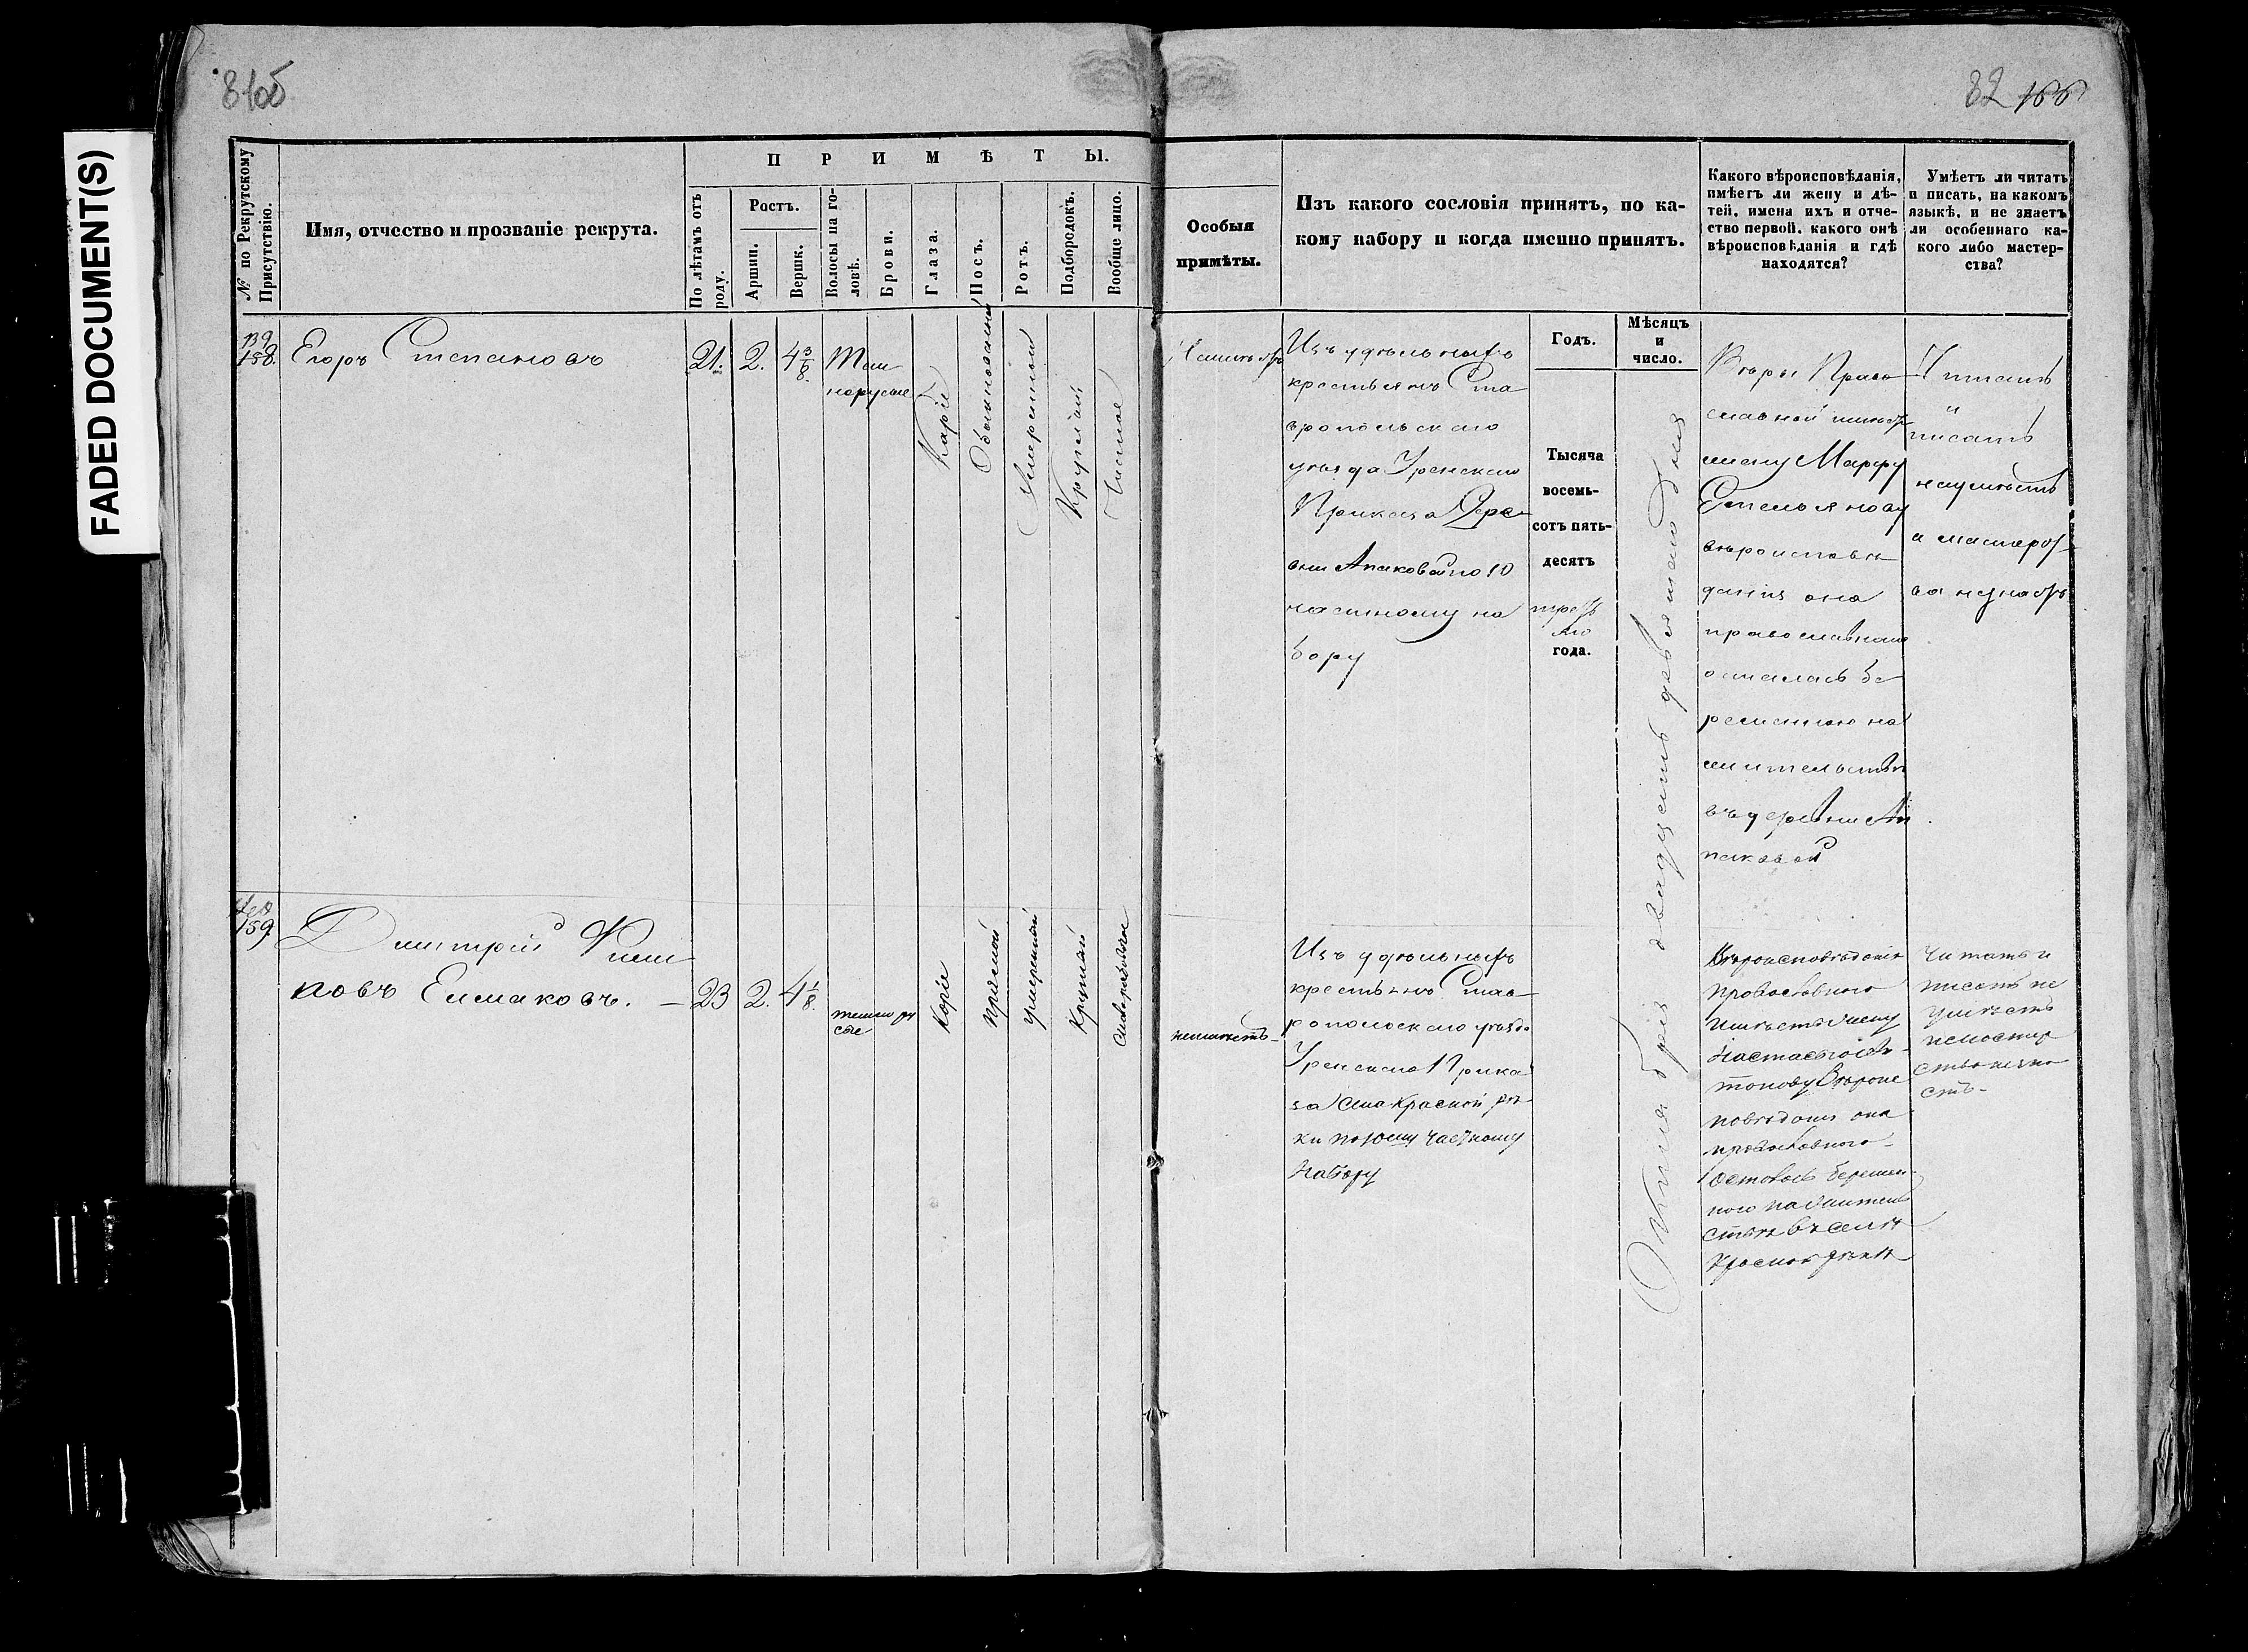 FADED DOCUMENT(S)
82 166
№ по Рекрутскому Присутствію.
Имя, отчество и прозваніе рекрута.
ПРИМѢТЫ.
По лѣтамъ отъ роду.
Ростъ.
Аршин.
Вершк.
Волосы на го-
ловѣ.
Брови.
Глаза.
Носъ.
Ротъ.
Подбородокъ.
Вообще лицо.
Особыя
примѣты.
Изъ какого сословія принятъ, по ка-
кому набору и когда именно принятъ.
Годъ.
Мѣсяцъ
и
число.
Какого вѣроисповѣданія,
имѣетъ ли жену и дѣ-
тей, имена ихъ и отче-
ство первой, какого онѣ
вѣроисповѣданія и гдѣ
находятся?
Умѣетъ ли читать
и писать, на какомъ
языкѣ, и не знаетъ
ли особеннаго ка-
кого либо мастер-
ства?
139
158.
Егоръ Степановъ
21.
2.
4 3/8.
Тем
норусые
Каріе
Обыкновенный
Умеренный
Круглый
Чистое
Изъ удѣльныхъ
крестьянъ Ста
вропольскаго
уѣзда Уренскаго
Приказа Дере
вни Апаковой по 10
частному на
бору
Тысяча
восемь-
сотъ пять-
десятъ
третьяго
года.
Октября двадцать девятаго дня
Вѣры Право
славной имѣетъ
жену Марфу
Емельянову
вѣроисповѣ
данія она
православнаго
осталась бе
ременною на
жительствѣ
въ деревни А
паковой
Читать
и
писать
неумѣетъ
а мастерст
ва незнаетъ
159
Дмитрій Фили
повъ Ермаковъ.
23
2.
4 1/8.
темно ру
сые
Каріе
прямой
умеренный
Круглый
неимѣетъ
Изъ удѣльныхъ
крестьянъ Став
ропольскаго уѣзда
Уренскаго Прика
за села Красной рѣ
ки по 10му частному
набору
Вѣроисповѣданія
православнаго
имѣетъ жену
Настасью Ан
тонову Вѣроис
повѣданія она
православнаго
осталась беремен
ною на жительс
ствѣ въ селѣ
Красной рѣкѣ
Читать и
писать не
умѣетъ
и мастер
ства незна
етъ